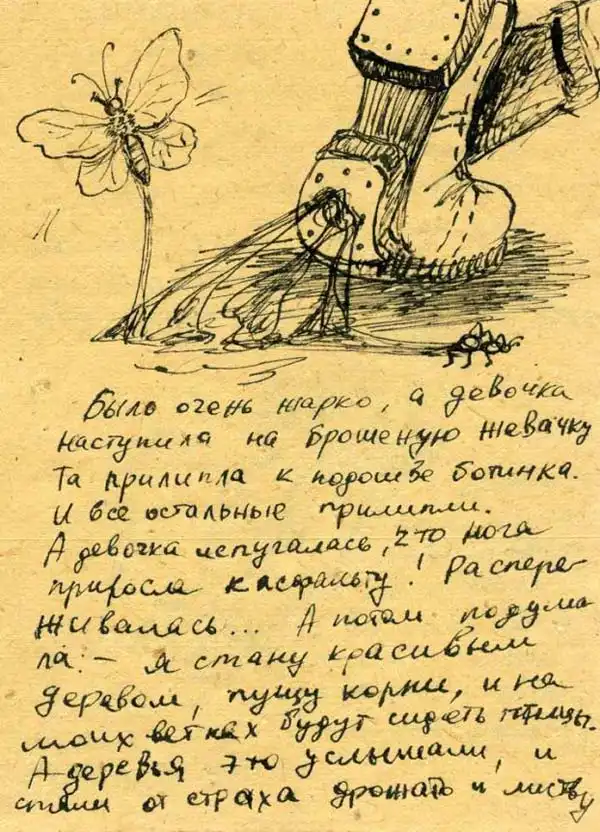 Было очень жарко, а девочка
наступила на брошеную жевачку
Та прилипла к подошве ботинка.
И все остальные прилипли.
А девочка испугалась, что нога
приросла к асфальту! Распере-
живалась... А потом подума
ла: - Я стану красивым
деревом, пущу корни, и на
моих ветках будут сидеть птицы.
А деревья это услышали, и
стали от страха дрожать и листву